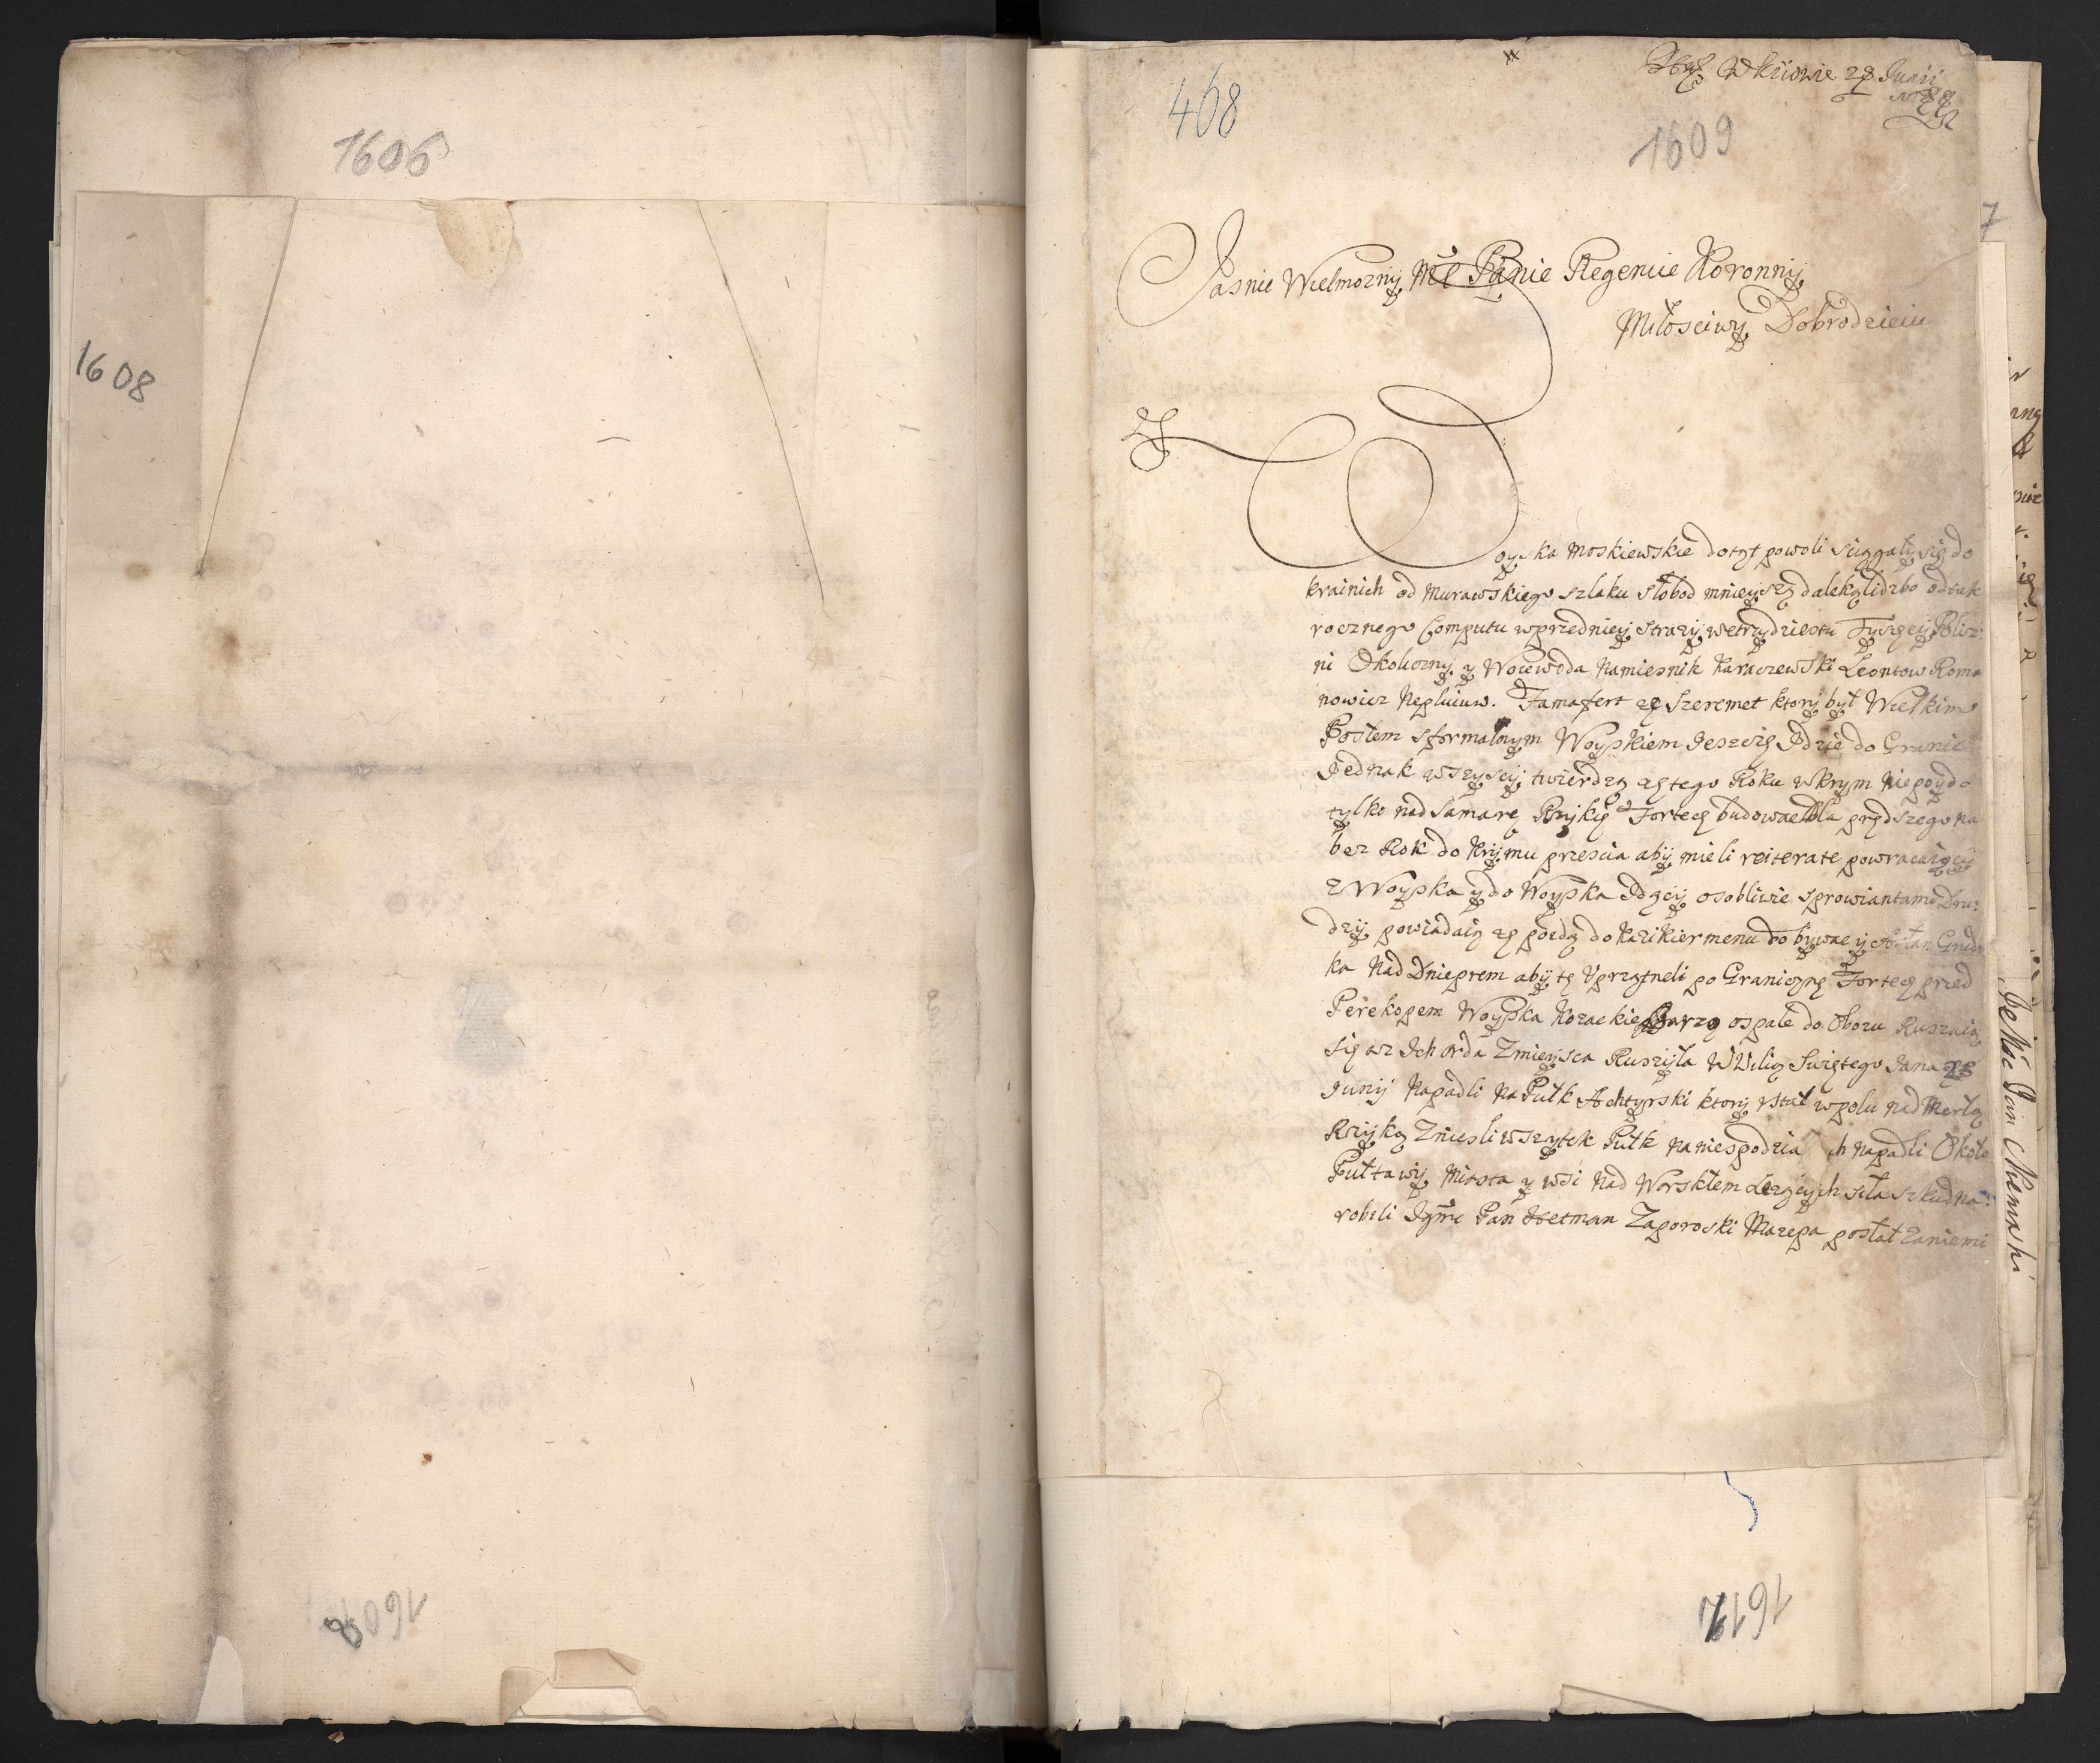 1606
1608
1608
468
W Kiiowie 28 Junii
88
1609
Jasnie Wielmoznij Mł Panie Regencie Koronnij
Miłosciwy Dobrodzieiu
Woyska Moskiewskie dotąt powoli sciągały się do
krainich od Murawskiego szlaku słobod mnieyszą daleką lidzbo od tak
rocznego Computu w przedniey Strazy we trzydziestu Tysięcy Blisz
ni Okoliczny y Woiewoda Namiesnik Karaczewski Leontow Roma
nowicz Nepluiuw. Fama fert że Szeremet ktory był Wielkim
Posłem s formalnym Woyskiem Jeszcze Idzie do Granic
Jednak wszyscy twierdzą że tego Roku w krym nie poydo
tylko nad Samarę Rzykę Fortecę budowac dla prędszego na
bez Rok do Krymu przescia aby mieli reiterate powracaiący
z Woyska y do Woyska Idący osobliwie s prowiantami Dru:
dzy powiadaią że poydą do Kazikiermenu dobywac y Asłan Grod
ka Nad Dnieprem aby tę Uprzątneli po Graniczną Fortecę przed
Perekopem Woyska Kozackie Barzo ospale do Obozu Ruszaią
się az Ich orda Zmieysca Ruszyła W Wilią Swiętego Jana
Junij Napadli Na Pułk Achtyrski ktory stał w polu nad Merłą
Rzyką Zniesli wszytek Pułk na niespodzia ch napadli Około
Pułtawy Miasta y wsi Nad Worskłem Lezących siła szkud na:
robili Jgmc Pan Hetman Zaporoski Mazepa posłał Za niemi
Je Mśc Pan
1612